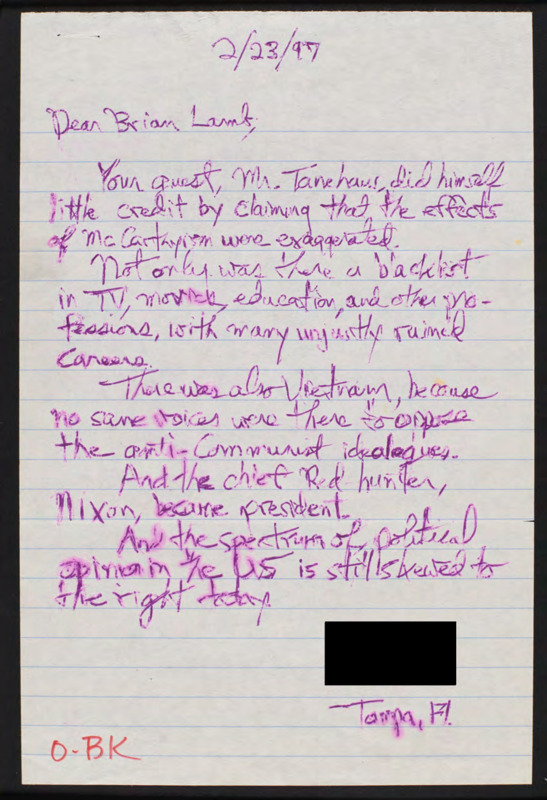 2/23/97
Dear Brian Lamb,
Your guest, Mr. Tanehaus, did himself
little credit by claiming that the effects
of McCarthyism were exaggerated.
Not only was there a blacklist
in TV, movies, education, and other pro-
fessions, with many unjustly ruined
careers.
There was also Vietnam, because
no sane voices were there to oppose
the anti-Communist idealogues.
And the chief Red hunter,
Nixon, became president.
And the spectrum of political
opinion in the US is still skewed to
the right today.
Tampa, Fl.
O-BK